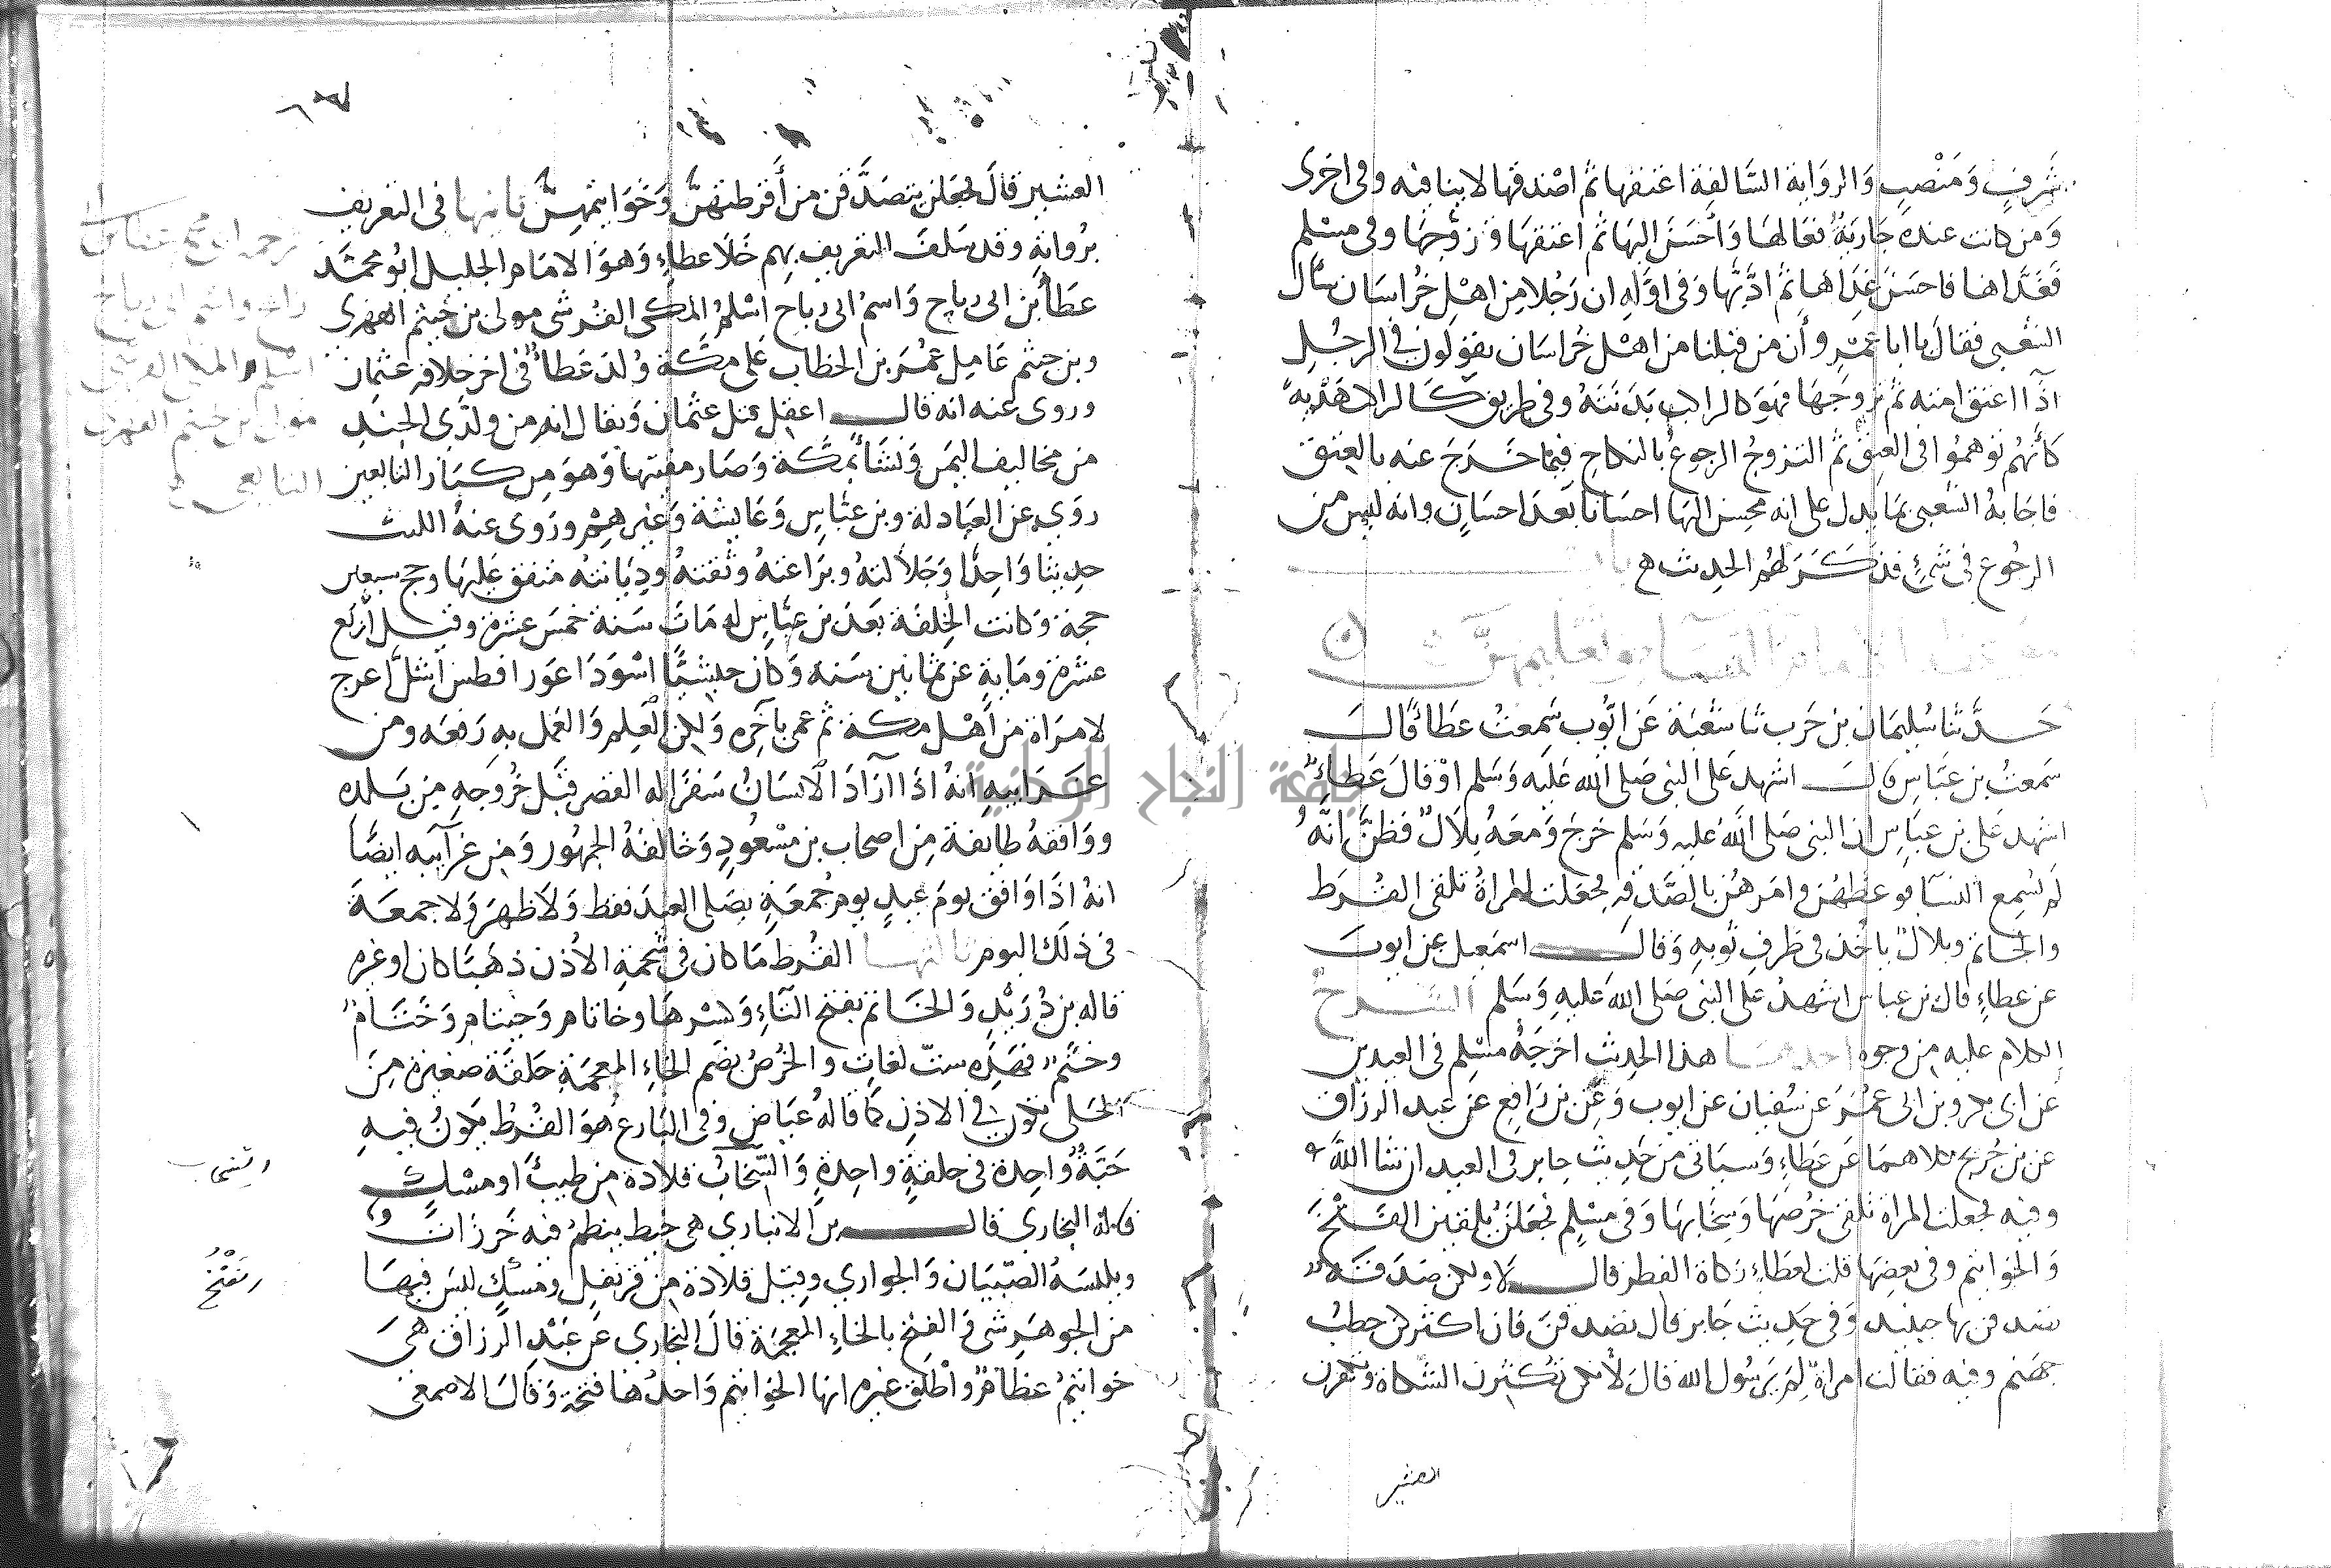 شَرفٍ وَمَنْصبٍ وَالرِوَاية السَّالِفِة اعتقها ثم اصْدقها لا ينافيه وفي اخرى
وَمن كانت عنده جَاريَةٌ فعَالهَا وَاَحْسَنَ اليهَا ثم اعتقهَا وَتزوّجهَا وفي مسْلم
فغَذّاهَا فاحسَنَ غِذَاهَا ثم ادَّبَها وَفي اوَّلهِ ان رَجُلا مِن اهْلِ خُراسَان سَال
الشعْبي فقالَ يا ابا عَمْرٍو اَن من قبلنا من اهْل خُراسَان يقولون في الرجُلِ
اذَا اعتق امته ثم تزوجَهَا فهوَ كالراكب بَدَنتَهُ وفي طريق كَالراكب هَدْيه
كَأنّهُم توهموُا في العِتق ثم التزوجُ الرجوعُ بالنكاحِ فيمَا خَرَجَ عنه بالعِتق
فاجَابهُ الشعْبي بمَا يدل على انه محسِن اليهَا احسَانًا بَعدَ احسَانٍ وانه ليسَ من
الرجُوع في شَيْءٍ فذكَرَ لهُم الحدِيث ه
باب
عظة الامام النسا وتعليمهن
حَدَّثنا سُليمَان بن حَرب ثنا شعْبَة عَن ايُّوب سَمِعتُ عطَاً قالَ
سَمعتُ بن عَبَّاس قالَ اشهد عَلى النبي صَلى الله عَليه وَسَلم اوْ قالَ عَطاءٌ
اشهد عَلى بن عبَاسٍ ان النبي صَلى اللّهُ عليه وسَلم خرجَ وَمعَهُ بلاَلٌ فظنَّ انَّهُ
لم يُسْمِع النسَا فوعظهُن وامَرهُنَّ بالصَّدقةِ فجعَلت المراةُ تلقى القُرط
والخاتم وبلالٌ ياخُذ في طَرفِ ثوبهِ وَقالَ اسمَعِيل عن ايوبَ
عن عطاءٍ قال بن عباس اشهدُ على النبي صَلى اللهُ عليهِ وَسَلم الشَّرحُ
الكلام عليه من وجوه احدهَا هذا الحديث اخرَجَهُ مسْلم في العيدين
عَن ابي بكر وبن ابي عُمَرَ عن سُفيان عن ايوب وَعَن بن رَافِعٍ عَن عبد الرزاق
عن بن جُريج كلاهمَا عَن عَطاءٍ وَسيَاتى من حَدِيث جابر في العيد ان شا الله
وفيه فجعلت المراة تلقى خُرصَهَا وَسِخَابهَا وَفي مسْلِمٍ فجَعَلنَ يُلقين الفَتخَ
وَالخواتم وفي بعضِهَا قلت لعَطاءٍ زكاة الفطر قالَ لاَ ولكن صَدَقة
يتصدقن بها حينيد وَفي حَدِيث جَابر قال تصَدقنَ فان اكثركن حطبُ
جهَنم وفيه فقالت امراةٌ لِمَ يَرَسُول الله قالَ لأنكن تُكثِرن الشكاة وَتكفرن
العشير
العشير قالَ فجعَلنَ يتصَدَّقن من أَقرطتهنَّ وَخَوَاتمهنَّ ثانيها في التعريف
برُواتِه وقد سَلفَ التعريف بهم خَلاَ عطاءٍ وَهوَ الامَام الجليل ابُو محمَّد
عَطَا بن ابي رباحٍ وَاسمُ ابي رباح اسْلمُ المكى القُرشى مولى بن خيثم الفهري
وبن خيثم عَامِل عمُرَ بن الخطاب عَلى مكَّة وُلدَ عَطاءٌ في اخر خلافةِ عثمَان
وروى عنه انه قال اعقِل قتل عثمَان وَيقال انه من ولدِى الجنَدِ
من مخاليف اليَمن وَنشَأ بمكَّة وَصَار مفتيها وَهوَ من كبَار التابعين
روَى عن العبَادلة وبن عبَّاسٍ وَعَايشة وَغيرهِمْ وروى عنهُ الليث
حديثا وَاحِدًا وَجَلاَلتهُ وبَرَاعتهُ وثقتهُ ودِيَانتهُ متفق عَليهَا وحج سبعين
حجة وَكانت الحَلقَة بَعدَ بن عبَّاسٍ له مَاتَ سَنة خمسَ عشرة وقيل اربَع
عشرَة ومَايةٍ عن ثمَانين سَنه وَكان حبشيًّا اسْودَ اعوَر افطس اَشلَّ اعرج
لامرَاة من اَهْل مكة ثم عمى بآخِره وَلكن العِلم وَالعَمل به رَفعَه ومن
غَرَايبه اَنهُ اذَا اَرَادَ الانسَانُ سَفرًا له القصر قبَل خُرُوجهِ مِن بَلده
ووَافقهُ طايفة مِن اصحاب بن مسْعُودٍ وَخالفهُ الجمهُور وَمِن غرآيبه ايضًا
انهُ اذَا وَافق يومَ عِيدٍ يوم جُمعَةٍ يصَلى العيدَ فقط وَلاَ ظهرَ وَلا جمعَة
في ذلكَ اليوم ثالثها القُرط مَا كان في شحمةِ الاُذن ذهَبًا كان او غيره
قاله بن دُرَيْدٍ وَالخاتم بفتح التَاءِ وَكسْرهَا وخاتام وَخيتام وَخَتَام
وختْم فهَذِه ستّ لغاتٍ والخُرصُ بضَم الخاءِ المعجمَةِ حَلقَة صَغيرة مِنَ
الحَلى تكون في الاذن كما قالهُ عيَاض وفي البَارع هُوَ القُرط يكونُ فيهِ
حَبَّةٌ وَاحِدة في حلقةٍ واحِدةٍ وَالسِّخابُ قلادة من طيبٍ او مسْكٍ
قاله البخاري قال بن الانباري هى خيط ينظم فيه خَرزَات
ويلبسَهُ الصّبيَان وَالجواري وقيل قلادة من قرنفل ومسْك ليسَ فيهَا
من الجوهَر شى وَالفتخ بالخاءِ المعجمة قالَ البخاري عَن عَبْد الرزاق هىَ
خواتيمُ عظَام وَاَطلق غيره انها الخواتيم وَاحدُها فتخة وَقالَ الاصمعي
ترجمة
رباح واسم ابي رباح
اسْلم المكي القرشي
مولى بن خيثم الفهري
التابعي
السخاب
الفتخ
جامعة النجاح الوطنية